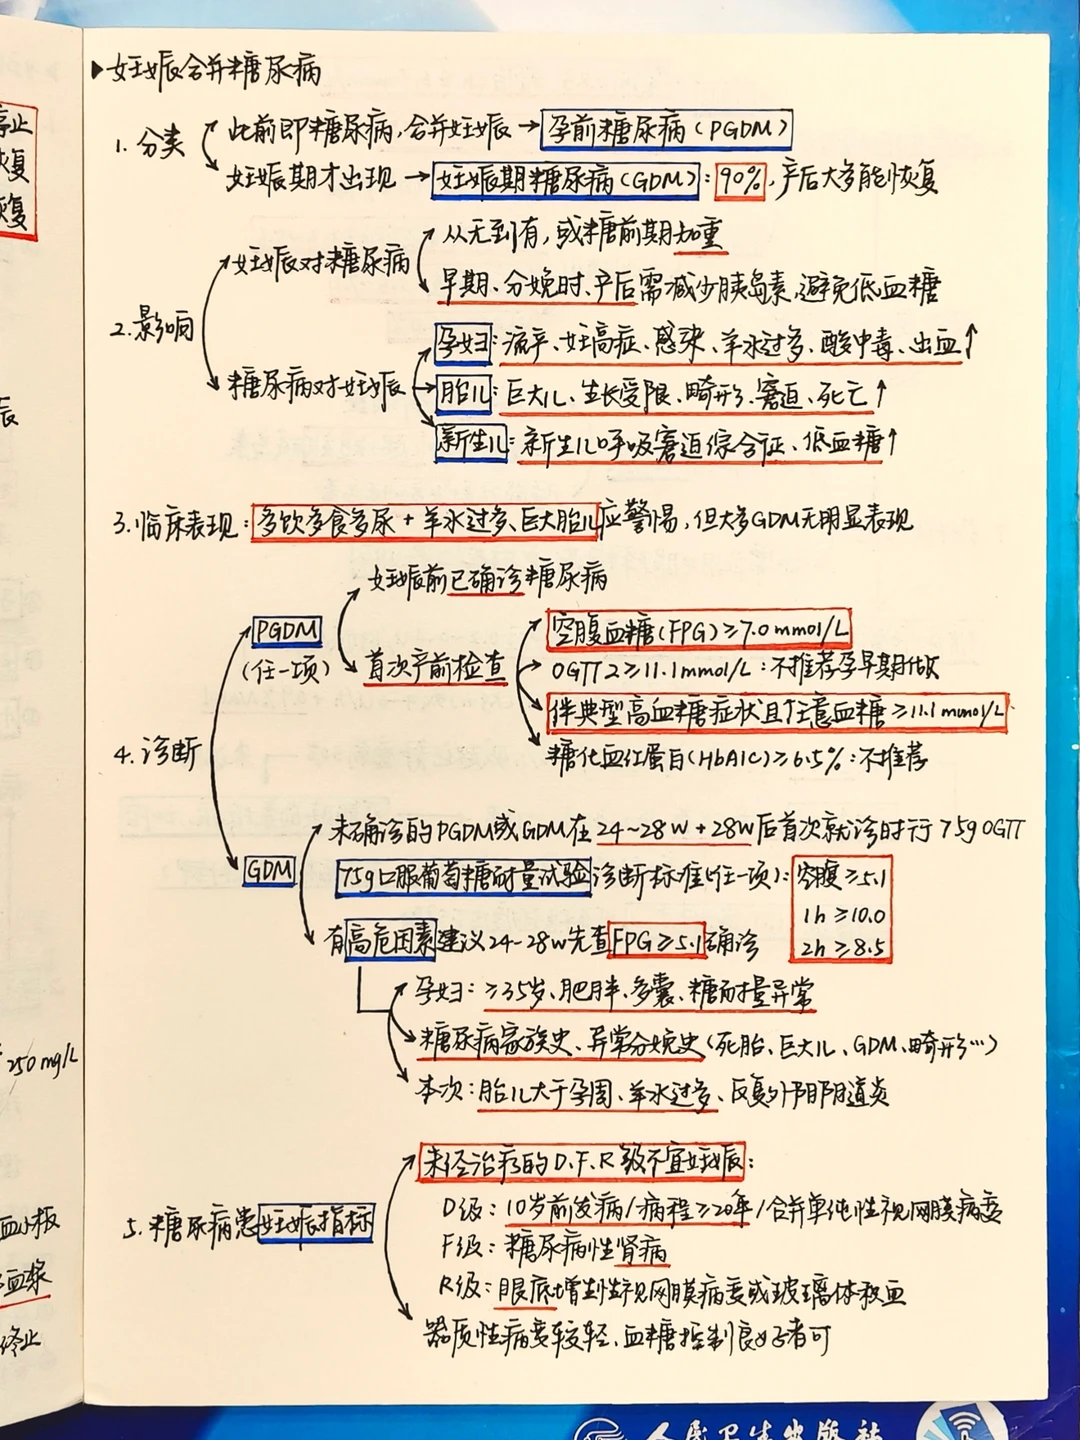 ▶妊娠合并糖尿病
停止
1. 分类
此前即糖尿病,合并妊娠→孕前糖尿病(PGDM)
恢复
妊娠期才出现→妊娠期糖尿病(GDM):90%,产后大多能恢复
恢复
2. 影响
妊娠对糖尿病
从无到有,或糖前期加重
早期、分娩时、产后需减少胰岛素,避免低血糖
糖尿病对妊娠
孕妇:流产、妊高症、感染、羊水过多、酸中毒、出血↑
胎儿:巨大儿、生长受限、畸形、窘迫、死亡↑
新生儿:新生儿呼吸窘迫综合征、低血糖↑
3. 临床表现:多饮多食多尿+羊水过多、巨大胎儿应警惕,但大多GDM无明显表现
4. 诊断
PGDM
(任一项)
妊娠前已确诊糖尿病
首次产前检查
空腹血糖(FPG)≥7.0mmol/L
OGTT2≥11.1mmol/L:不推荐孕早期做
伴典型高血糖症状且任意血糖≥11.1mmol/L
糖化血红蛋白(HbA1C)≥6.5%:不推荐
GDM
未确诊的PGDM或GDM在24~28w+28w后首次就诊时行75gOGTT
75g口服葡萄糖耐量试验诊断标准(任一项):空腹≥5.1
1h≥10.0
2h≥8.5
有高危因素建议24~28w先查FPG≥5.1确诊
孕妇:≥35岁、肥胖、多囊、糖耐量异常
糖尿病家族史、异常分娩史(死胎、巨大儿、GDM、畸形…)
本次:胎儿大于孕周、羊水过多、反复外阴阴道炎
250mg/L
5. 糖尿病患妊娠指标
未经治疗的D、F、R级不宜妊娠:
D级:10岁前发病/病程≥20年/合并单纯性视网膜病变
F级:糖尿病性肾病
R级:眼底增生性视网膜病变或玻璃体积血
器质性病变较轻、血糖控制良好者可
血小板
血浆
终止
人民卫生出版社